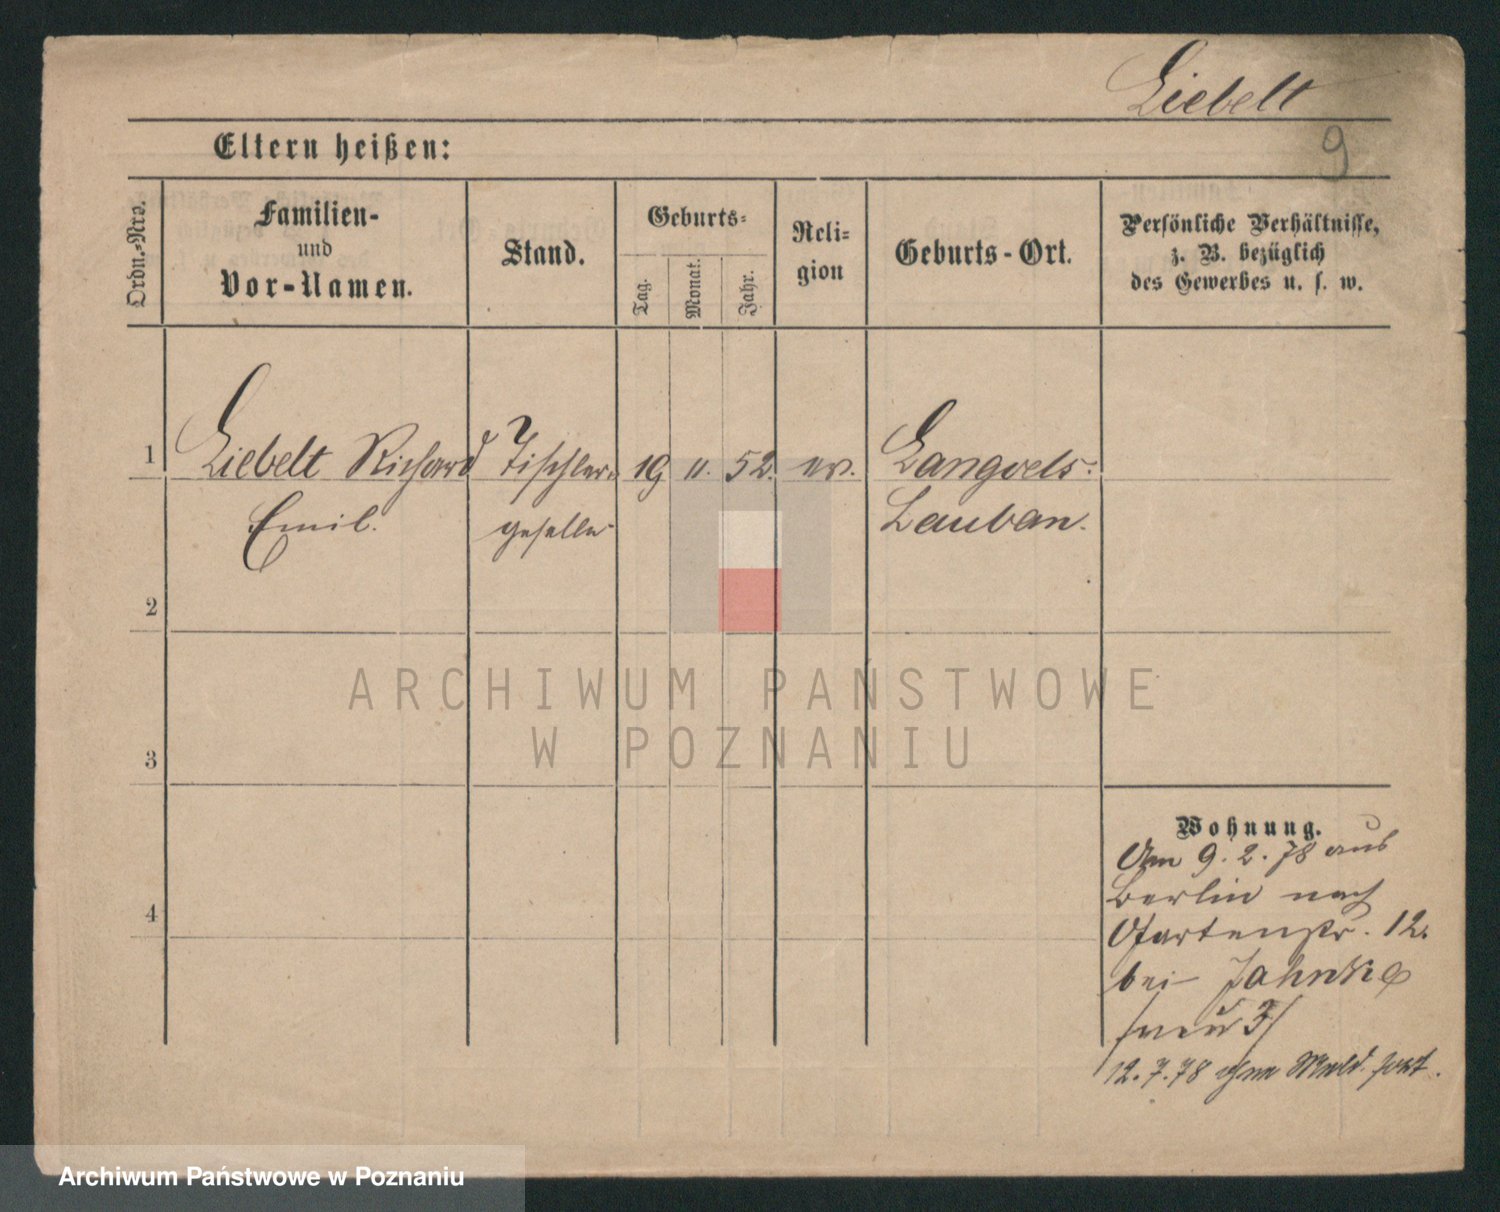 Liebelt
9
Eltern heißen:
Ordn.-Nro.
Familien-
und
Vor-Namen.
Stand.
Geburts-
Tag.
Monat.
Jahr.
Reli-
gion
Geburts-Ort.
Persönliche Verhältnisse,
z. B. bezüglich
des Gewerbes u. s. w.
1 Liebelt Richard Tischler- 19 11. 52. ev. Langoels.
Emil. geselle Lauban.
2
ARCHIWUM PAŃSTWOWE
W POZNANIU
3
Wohnung.
Am 9.2.78 aus
Berlin nach
Gartenstr. 12.
4
bei Jahnke
12.7.78 ohne Meld. fort.
Archiwum Państwowe w Poznaniu